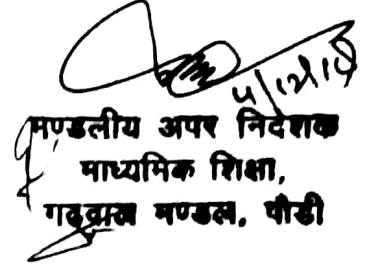 मण्डलीय अपर निदेशक
माध्यमिक शिक्षा,
गढ़वाल मण्डल, पौडी